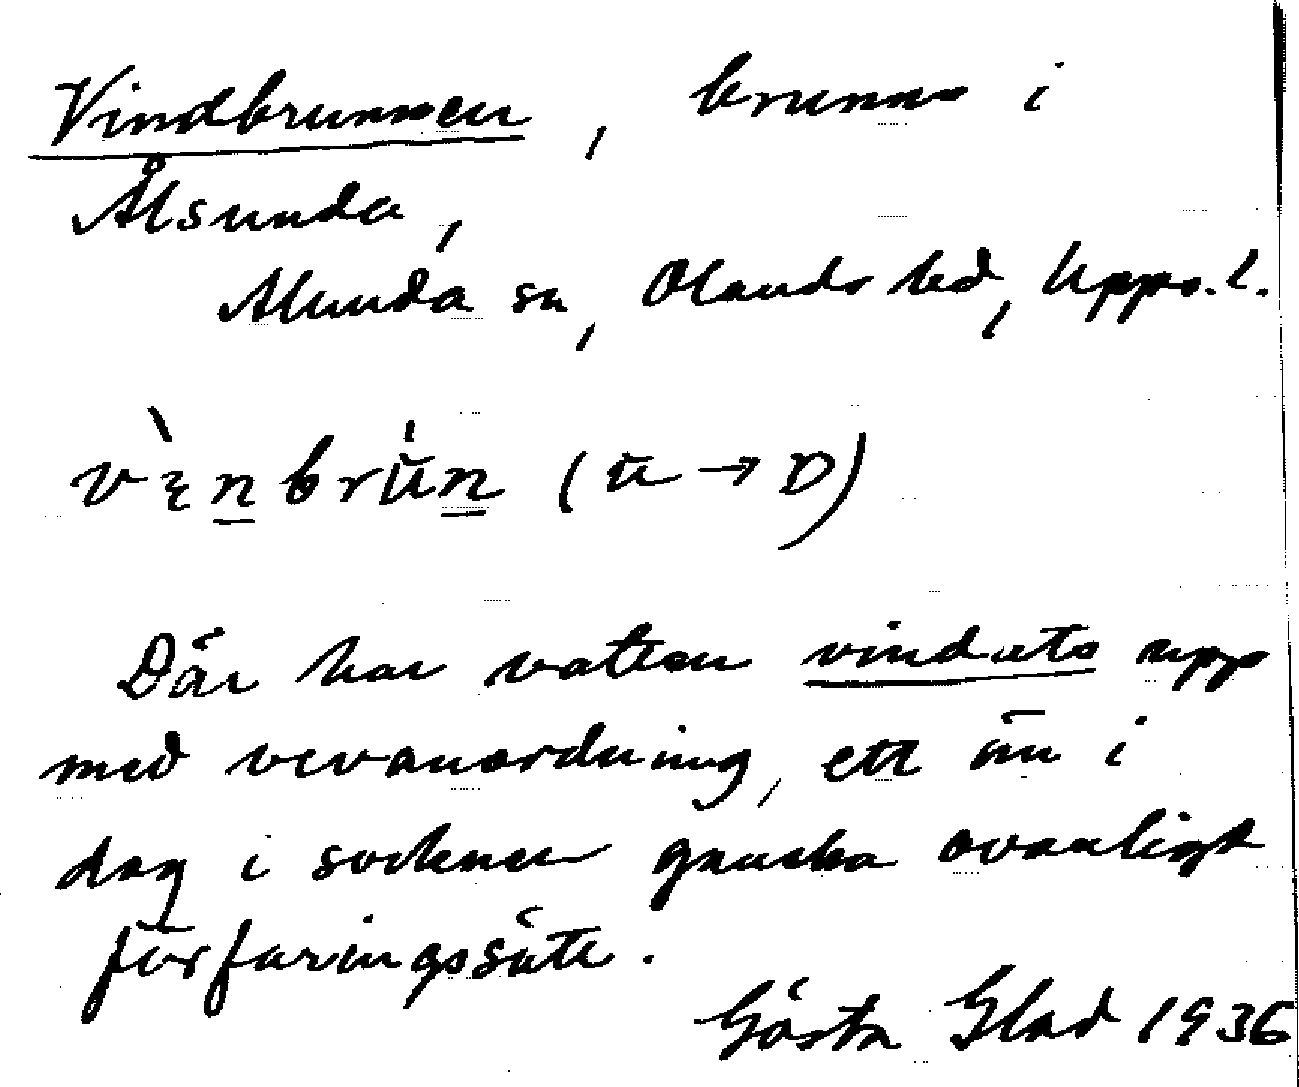 Vindbrunnen, brunn i
Ålsunda,
Alunda sn, Olands hd, Upps. l.
vɛ̀nbrŭn (ŭ → ɒ)
Där har vatten vindats upp
med vevanordning, ett än i
dag i socknen ganska ovanligt
förfaringssätt.
Gösta Glad 1936